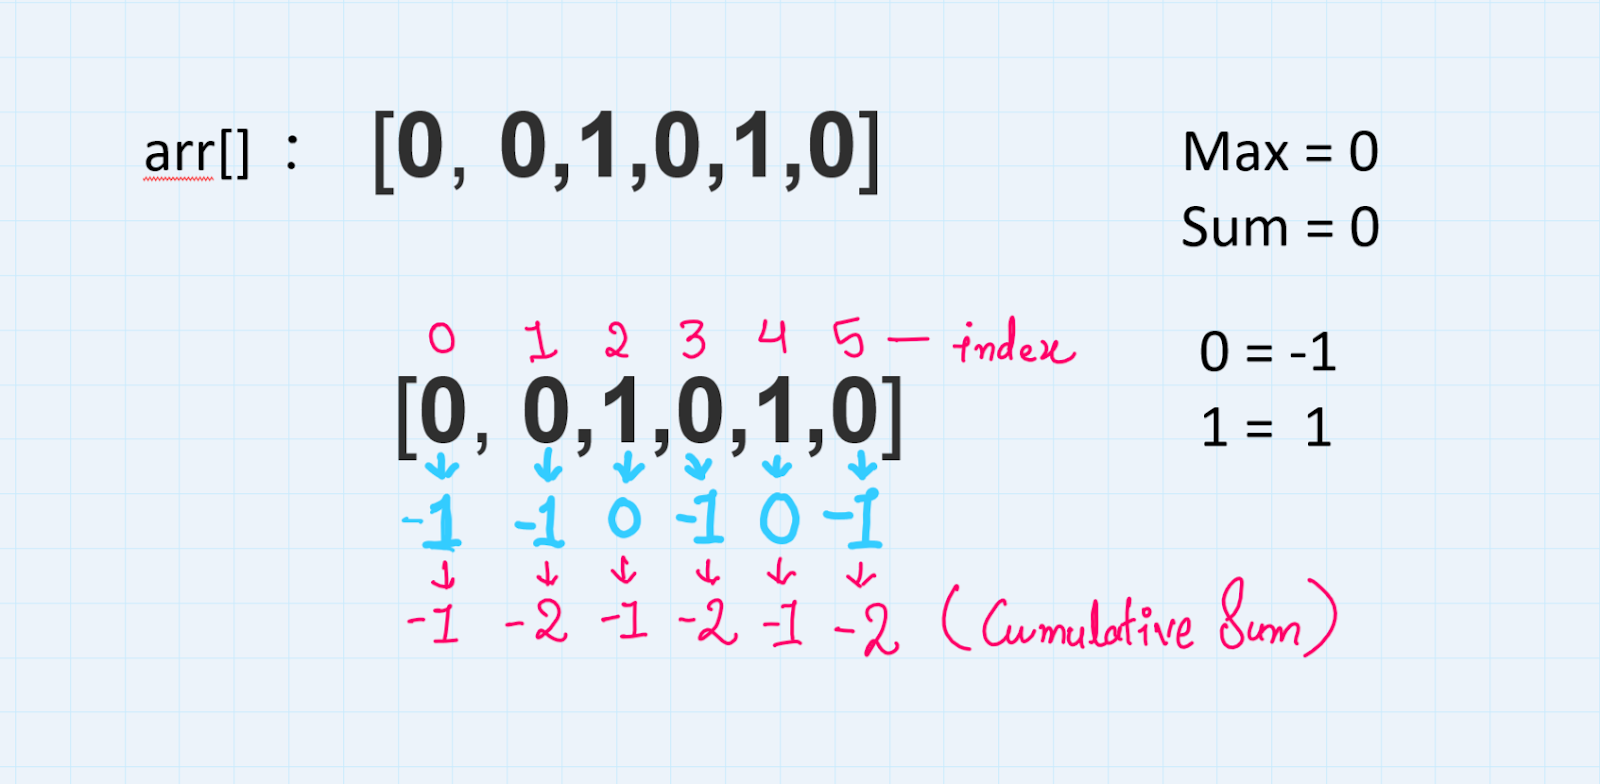 arr[] : [0, 0,1,0,1,0]
Max = 0
Sum = 0
0 1 2 3 4 5 — index
[0, 0,1,0,1,0]
0 = -1
1 = 1
-1 -1 0 -1 0 -1
-1 -2 -1 -2 -1 -2 (Cumulative Sum)